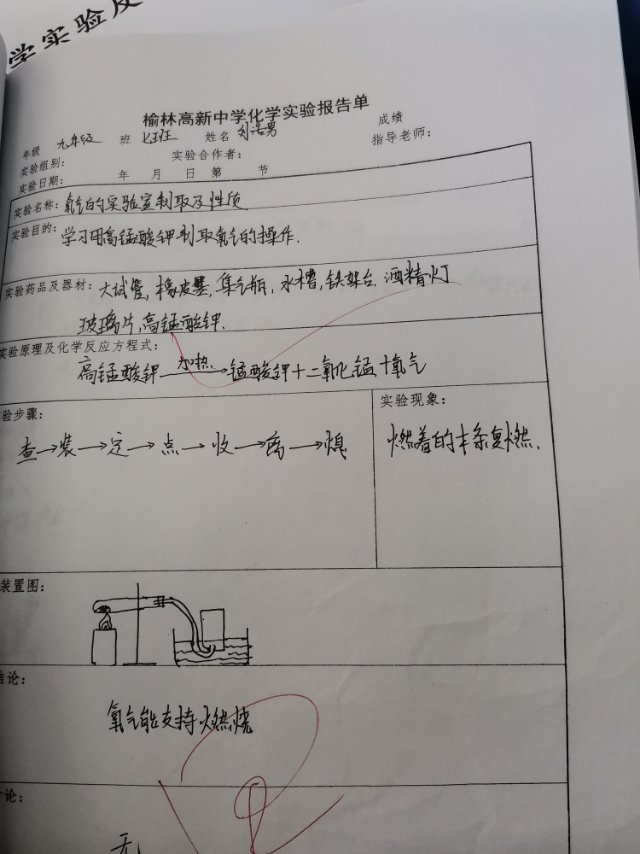 学实验反
榆林高新中学化学实验报告单
年级 九年级 班 七班 姓名 成绩
实验组别: 实验合作者: 指导老师:
实验日期: 年 月 日 第 节
实验名称: 氧气的实验室制取及性质
实验目的: 学习用高锰酸钾制取氧气的操作.
实验药品及器材: 大试管, 橡皮塞, 集气瓶, 水槽, 铁架台. 酒精灯
玻璃片, 高锰酸钾.
实验原理及化学反应方程式:
高锰酸钾 加热 → 锰酸钾+二氧化锰+氧气
验步骤: 实验现象:
查→装→定→点→收→离→熄 燃着的木条复燃.
装置图:
结论:
氧气能支持燃烧
讨论:
无